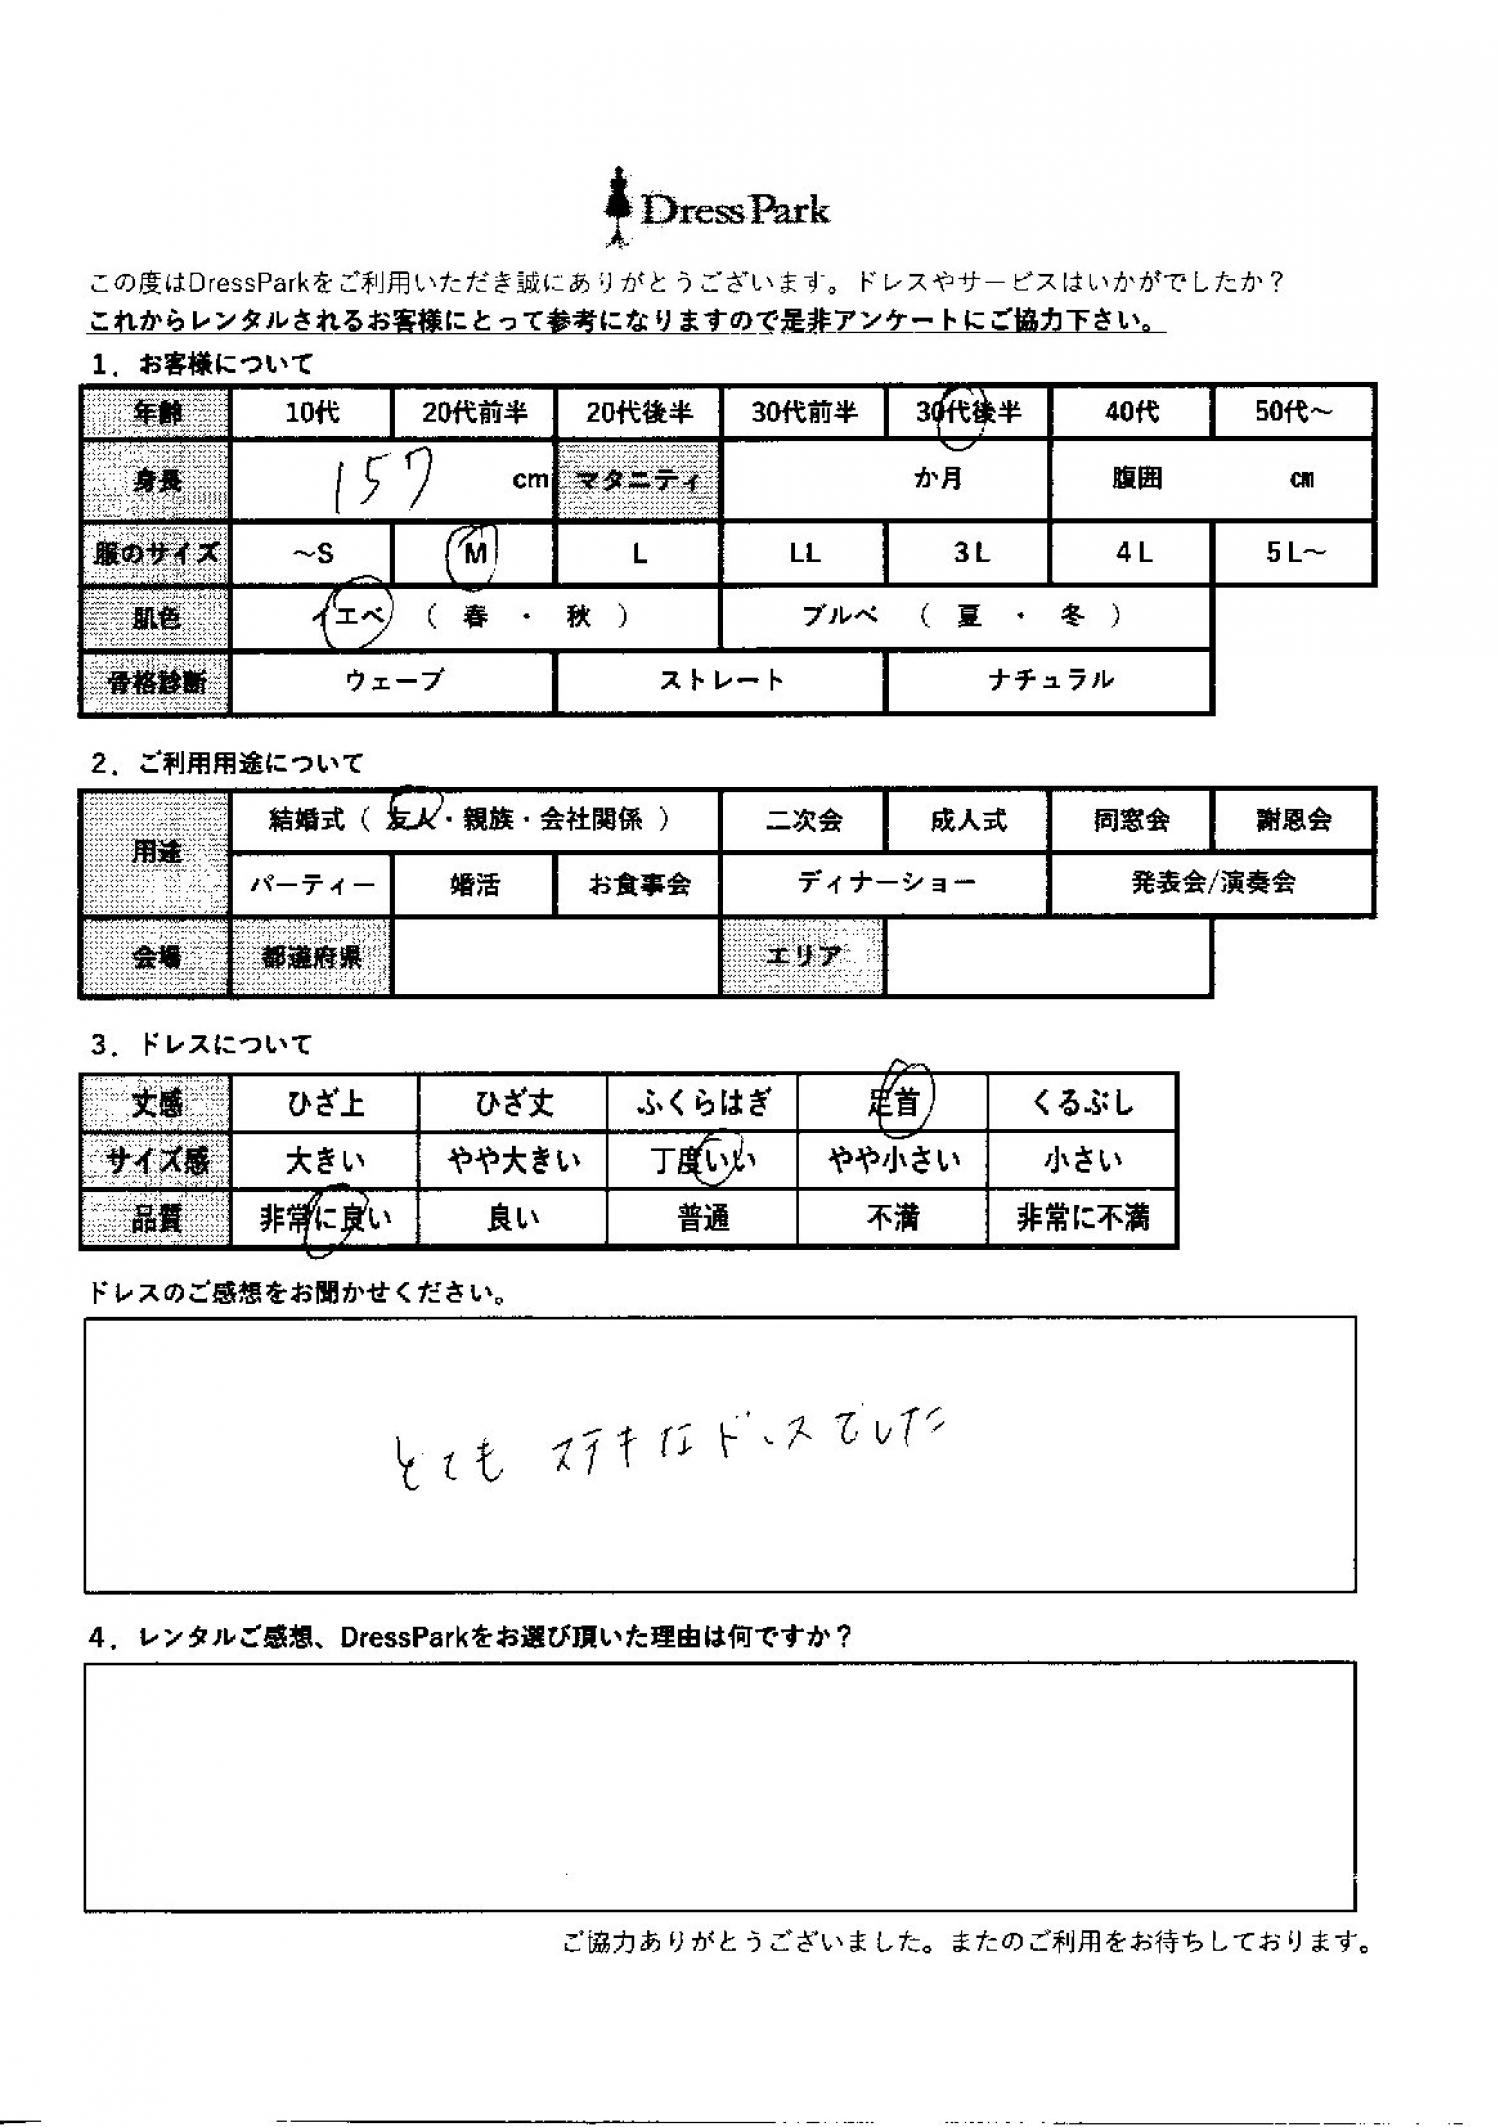 DressPark
この度はDressParkをご利用いただき誠にありがとうございます。ドレスやサービスはいかがでしたか？
これからレンタルされるお客様にとって参考になりますので是非アンケートにご協力下さい。
1．お客様について
年齢 10代 20代前半 20代後半 30代前半 30代後半 40代 50代～
身長 157 cm マタニティ か月 腹囲 cm
服のサイズ ～S M L LL 3L 4L 5L～
肌色 イエベ （ 春 ・ 秋 ） ブルベ （ 夏 ・ 冬 ）
骨格診断 ウェーブ ストレート ナチュラル
2．ご利用用途について
用途 結婚式（ 友人・親族・会社関係 ） 二次会 成人式 同窓会 謝恩会
パーティー 婚活 お食事会 ディナーショー 発表会/演奏会
会場 都道府県 エリア
3．ドレスについて
丈感 ひざ上 ひざ丈 ふくらはぎ 足首 くるぶし
サイズ感 大きい やや大きい 丁度いい やや小さい 小さい
品質 非常に良い 良い 普通 不満 非常に不満
ドレスのご感想をお聞かせください。
とても ステキなドレスでした
4．レンタルご感想、DressParkをお選び頂いた理由は何ですか？
ご協力ありがとうございました。またのご利用をお待ちしております。